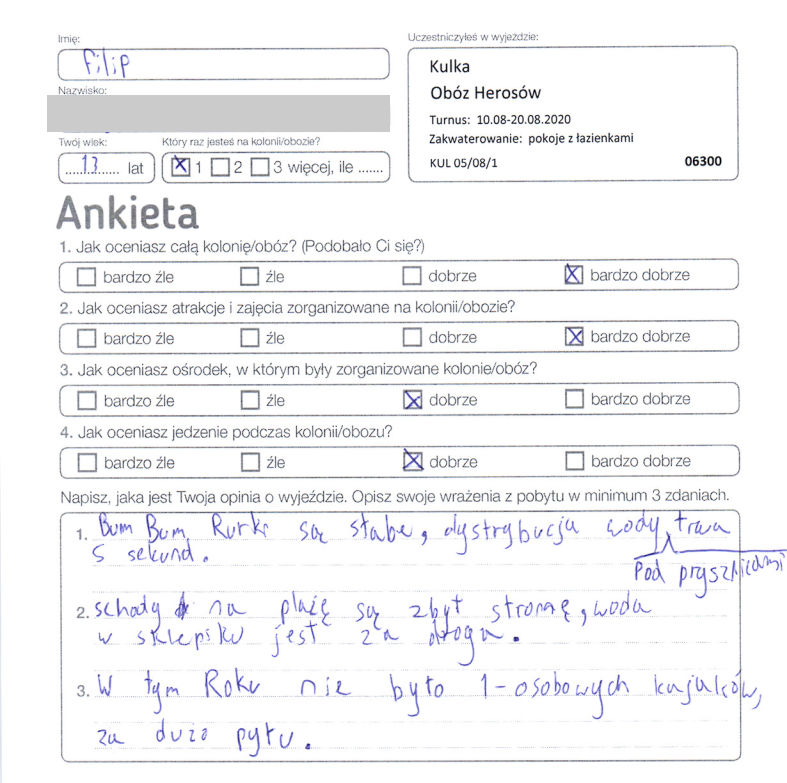 Imię:
Filip
Uczestniczyłeś w wyjeździe:
Kulka
Obóz Herosów
Turnus: 10.08-20.08.2020
Zakwaterowanie: pokoje z łazienkami
KUL 05/08/1 06300
Nazwisko:
Twój wiek:
13 lat
Który raz jesteś na kolonii/obozie?
1 2 3 więcej, ile .......
Ankieta
1. Jak oceniasz całą kolonię/obóz? (Podobało Ci się?)
bardzo źle źle dobrze bardzo dobrze
2. Jak oceniasz atrakcje i zajęcia zorganizowane na kolonii/obozie?
bardzo źle źle dobrze bardzo dobrze
3. Jak oceniasz ośrodek, w którym były zorganizowane kolonie/obóz?
bardzo źle źle dobrze bardzo dobrze
4. Jak oceniasz jedzenie podczas kolonii/obozu?
bardzo źle źle dobrze bardzo dobrze
Napisz, jaka jest Twoja opinia o wyjeździe. Opisz swoje wrażenia z pobytu w minimum 3 zdaniach.
1. Bum Bum Rurki są słabe, dystrybucja wody trwa
5 sekund.
Pod prysznicami
2. schody na plażę są zbyt stromę, woda
w sklepiku jest za droga.
3. W tym Roku nie było 1-osobowych kajaków,
za dużo pyłu.